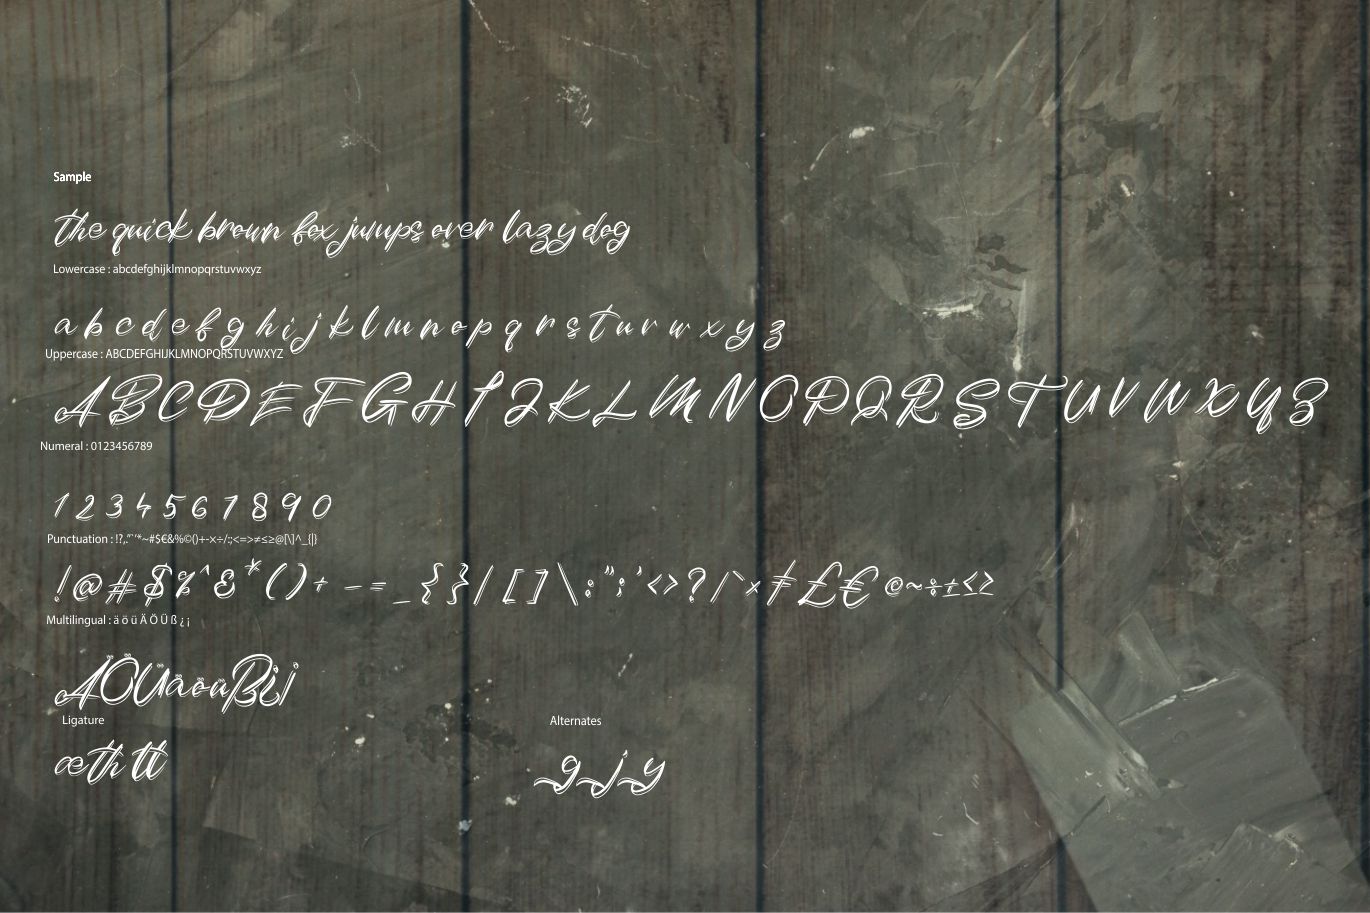 Sample
the quick brown fox jumps over lazy dog
Lowercase : abcdefghijklmnopqrstuvwxyz
a b c d e f g h i j k l m n o p q r s t u v w x y z
Uppercase : ABCDEFGHIJKLMNOPQRSTUVWXYZ
A B C D E F G H I J K L M N O P Q R S T U V W X Y Z
Numeral : 0123456789
1 2 3 4 5 6 7 8 9 0
Punctuation : !?,."¨'*~#$€&%©()+-×÷/:;<=>≠≤≥@[\]^_{|}
! @ # $ % ^ & * ( ) + - = _ { } | [ ] \ : " ; ' < > ? / ` × ≠ £ € © ~ ÷ ± ≤ ≥
Multilingual : ä ö ü Ä Ö Ü ß ¿ ¡
ÄÖÜäöüß¿¡
Ligature
Alternates
æ th tt
g j y